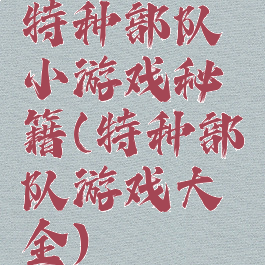 特种部队
小游戏秘
籍(特种部
队游戏大
全)